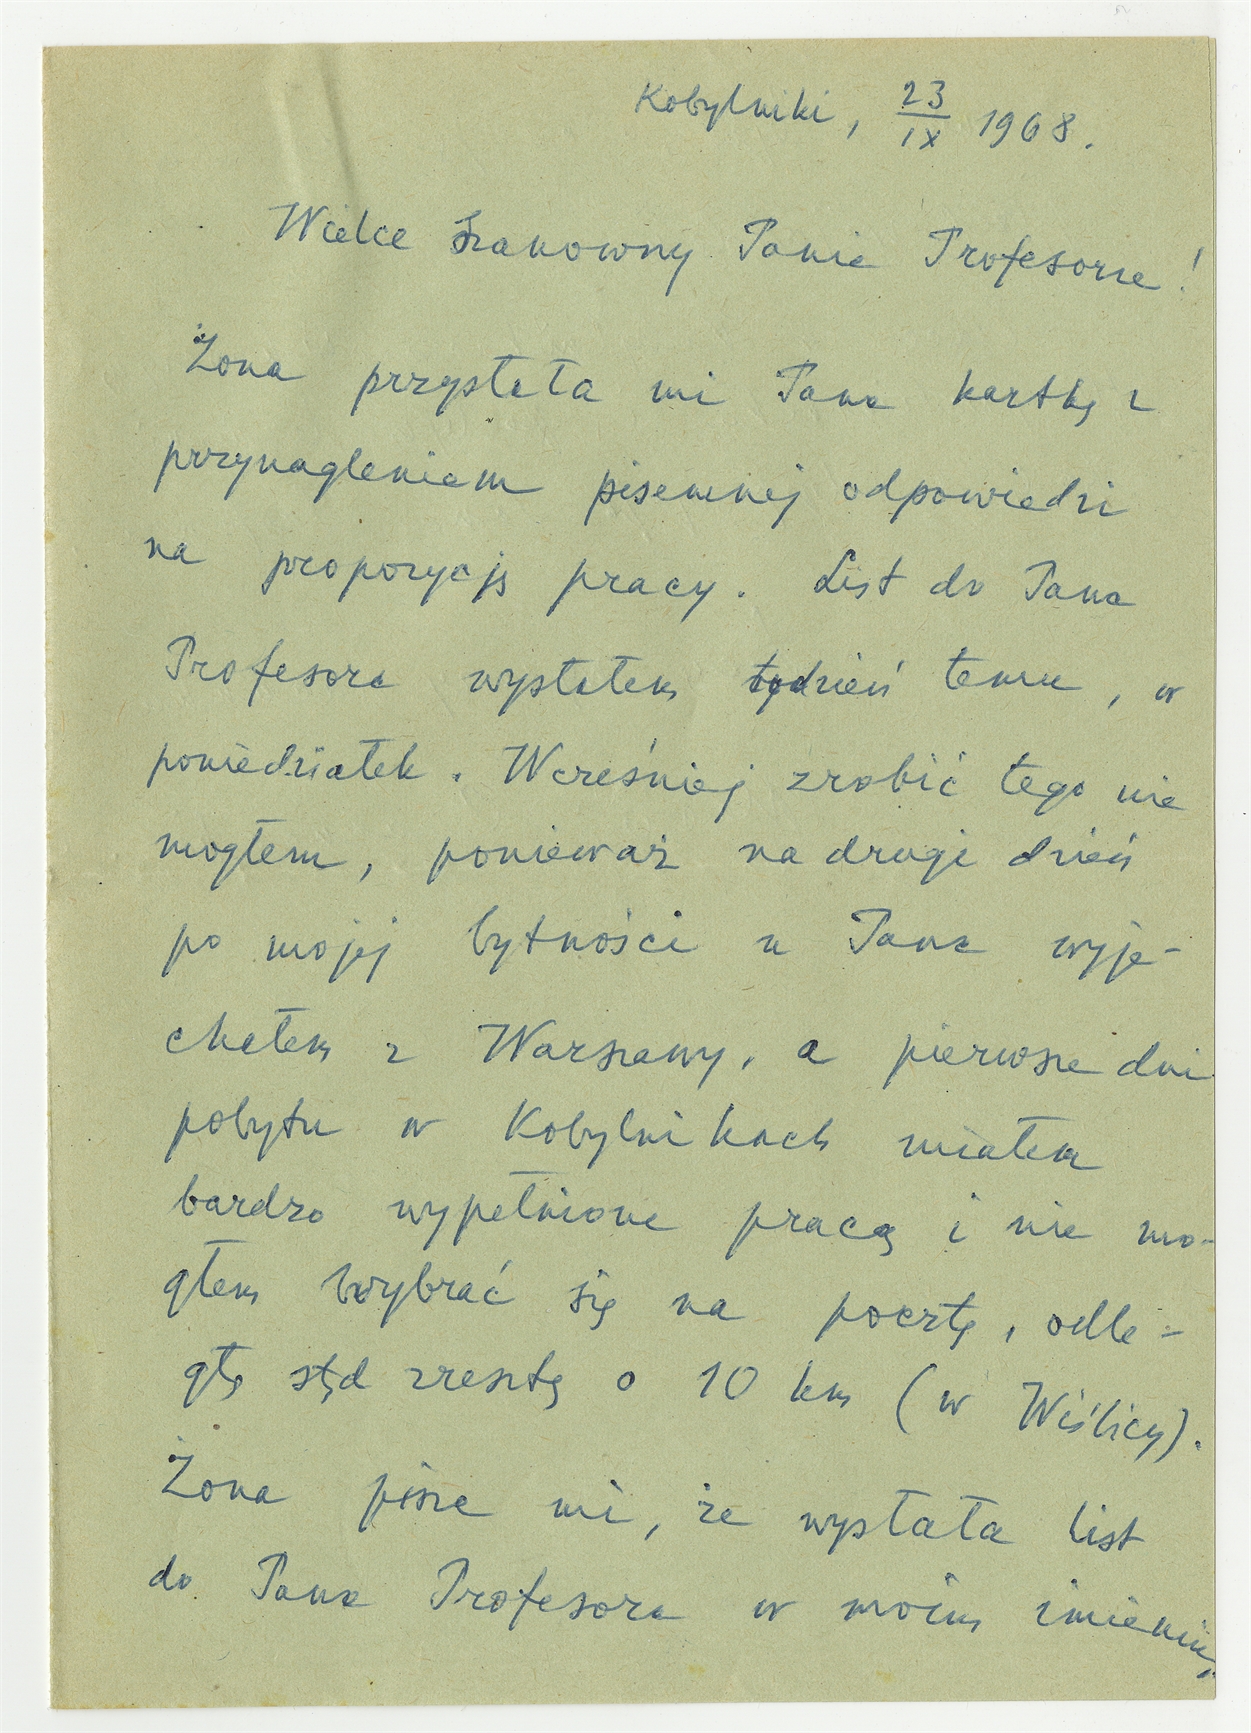 Kobylniki, 23/IX 1968.
Wielce Szanowny Panie Profesorze!
Żona przysłała mi Pana kartkę z
przynagleniem pisemnej odpowiedzi
na propozycję pracy. List do Pana
Profesora wysłałem tydzień temu, w
poniedziałek. Wcześniej zrobić tego nie
mogłem, ponieważ na drugi dzień
po mojej bytności u Pana wyje-
chałem z Warszawy, a pierwsze dni
pobytu w Kobylnikach miałem
bardzo wypełnione pracą i nie mo-
głem wybrać się na pocztę, odle-
głą stąd zresztą o 10 km (w Wiślicy).
Żona pisze mi, że wysłała list
do Pana Profesora w moim imieniu,